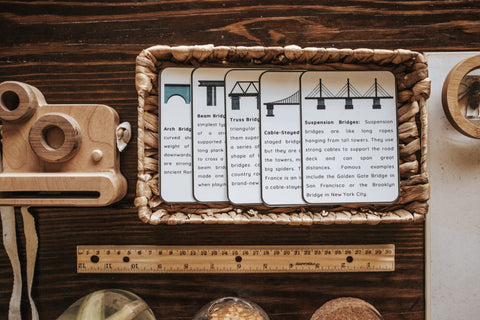 Arch Bridg
curved sha
weight of
are strong
ancient Ro
Beam Bridg
simplest ty
of a stro
supported
is to cross a
beam bridg
made one
when playin
Truss Bridg
triangular
them sturd
a series
shape of th
bridges
country roa
brand-new
Cable-Stayed
stayed bridge
but they are
the towers, m
big spiders. T
France is an
a cable-stayed
Suspension Bridges: Suspension
bridges are like long ropes
hanging from tall towers. They
use strong cables to support the road
deck and can span great
distances. Famous examples
include the Golden Gate Bridge in
San Francisco or the Brooklyn
Bridge in New York City.